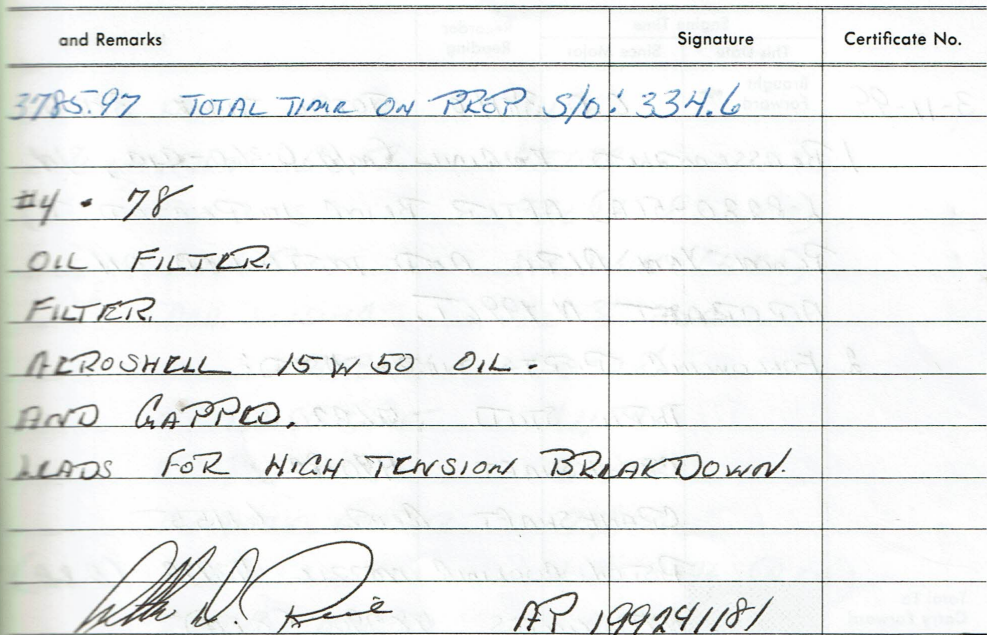 and Remarks Signature Certificate No.
3785.97 TOTAL TIME ON PROP S/O: 334.6
#4 - 78
OIL FILTER.
FILTER.
AEROSHELL 15W50 OIL.
AND GAPPED.
LEADS FOR HIGH TENSION BREAKDOWN.
AP 199241181